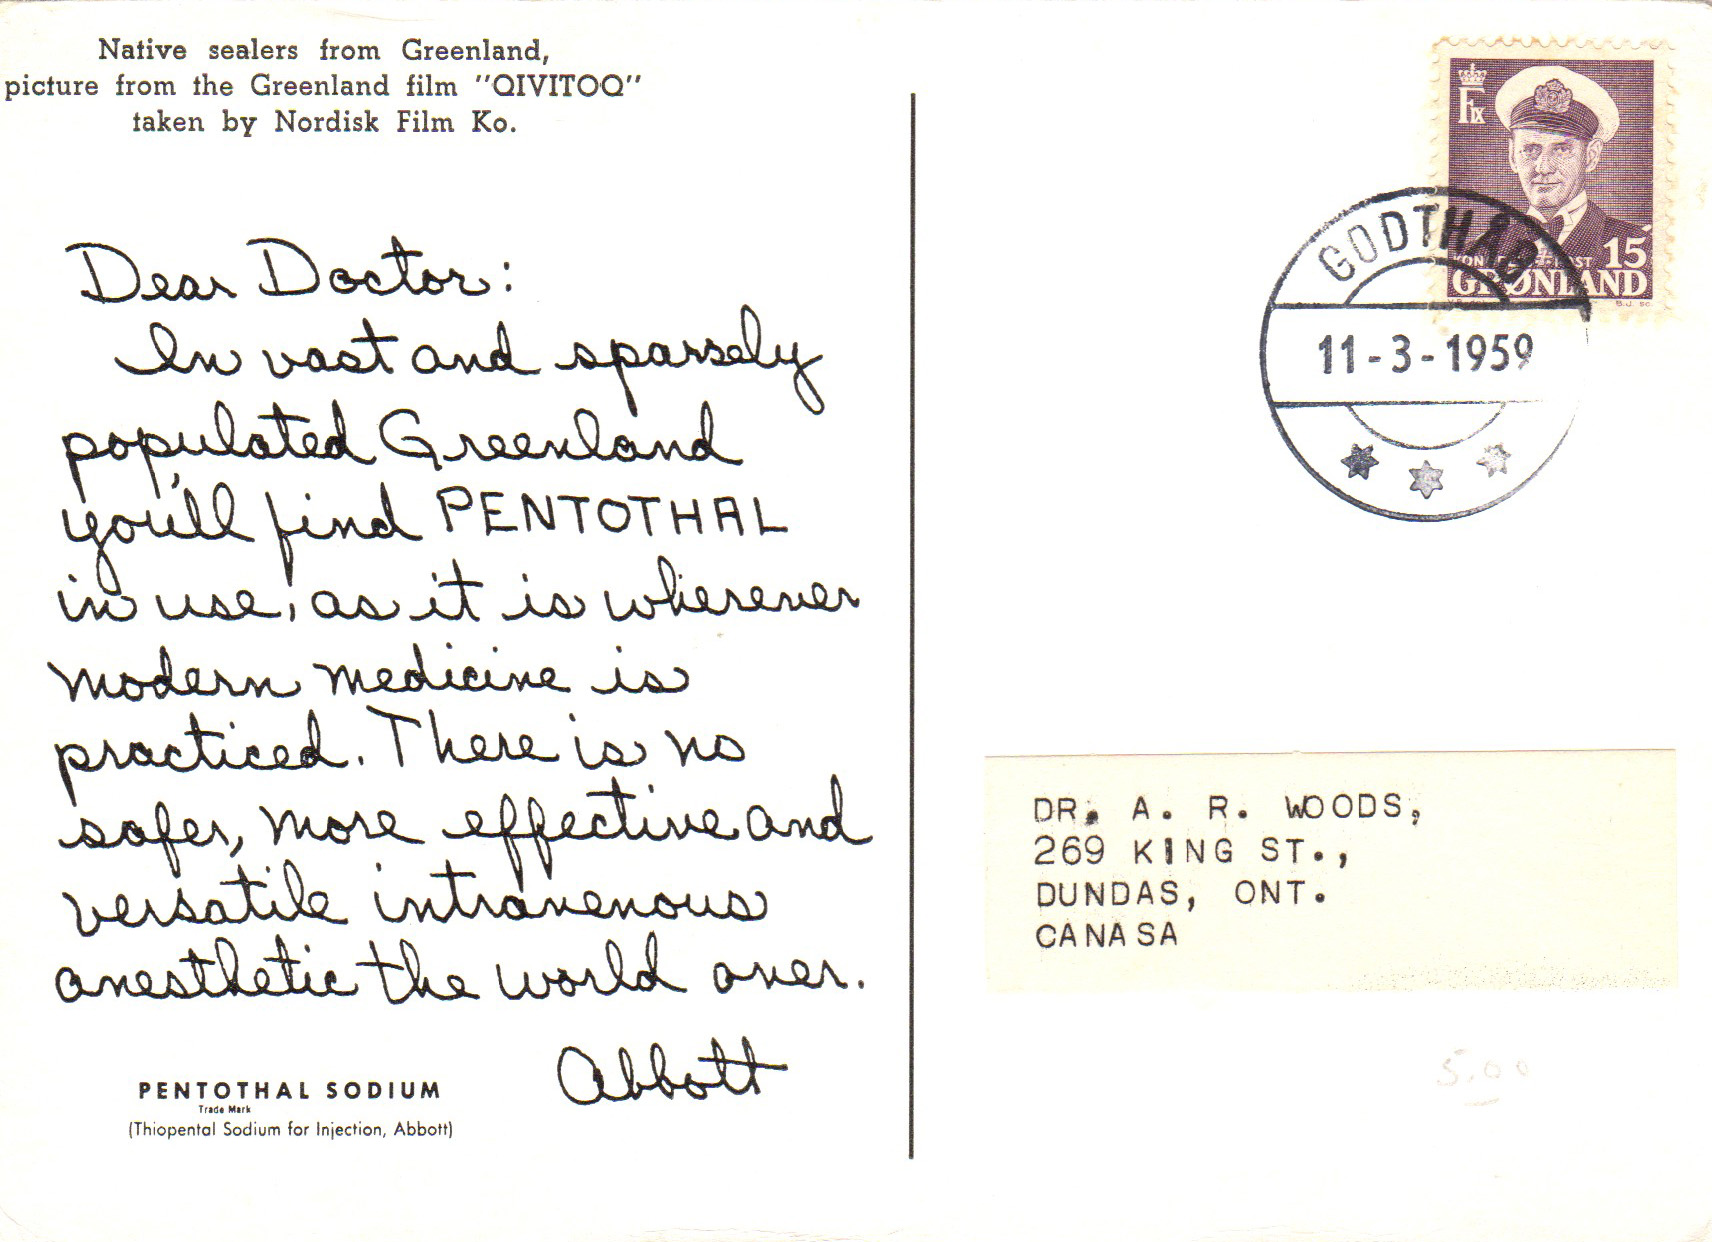 Native sealers from Greenland,
picture from the Greenland film "QIVITOQ"
taken by Nordisk Film Ko.
Dear Doctor:
In vast and sparsely
populated Greenland
you'll find PENTOTHAL
in use, as it is wherever
modern medicine is
practiced. There is no
safer, more effective and
versatile intravenous
anesthetic the world over.
Abbott
PENTOTHAL SODIUM
Trade Mark
(Thiopental Sodium for Injection, Abbott)
FIX
15
GRØNLAND
B.J. sc.
GODTHÅB
11-3-1959
DR. A. R. WOODS,
269 KING ST.,
DUNDAS, ONT.
CANASA
5.00